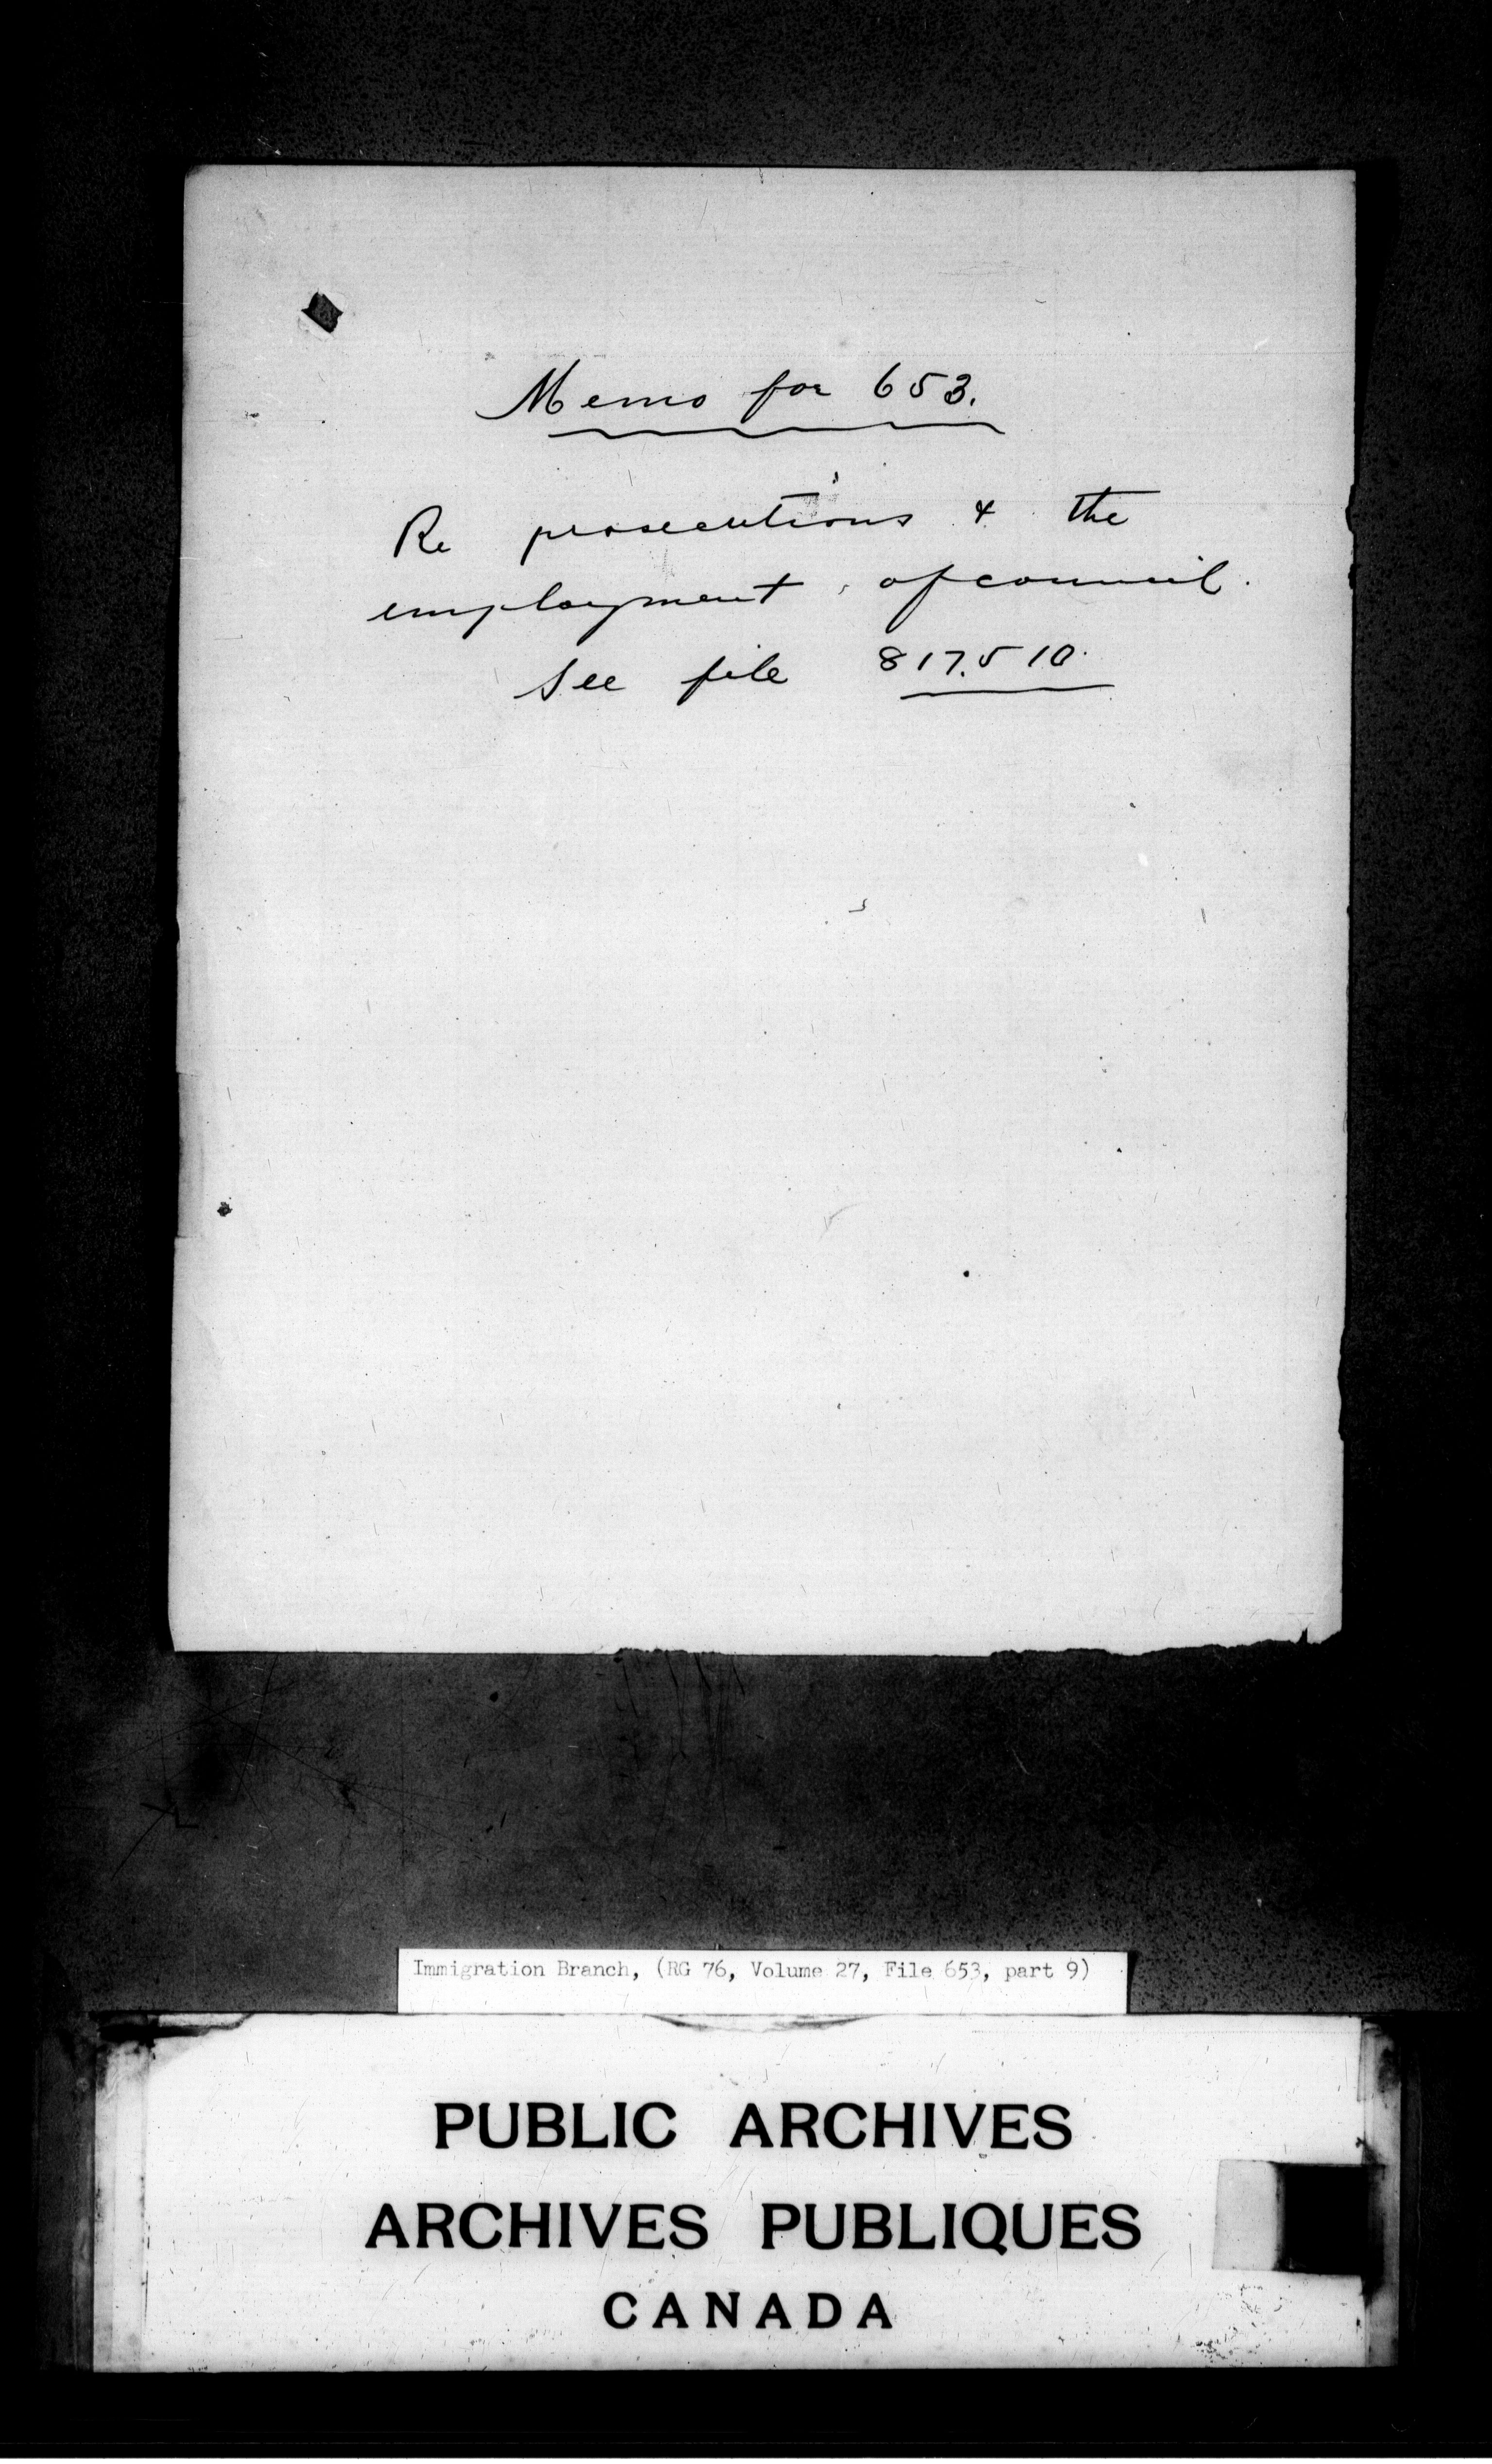 Memo for 653.
Re prosecutions & the
employment of council.
See file 817.510.
Immigration Branch, (RG 76, Volume 27, File 653, part 9)
PUBLIC ARCHIVES
ARCHIVES PUBLIQUES
CANADA